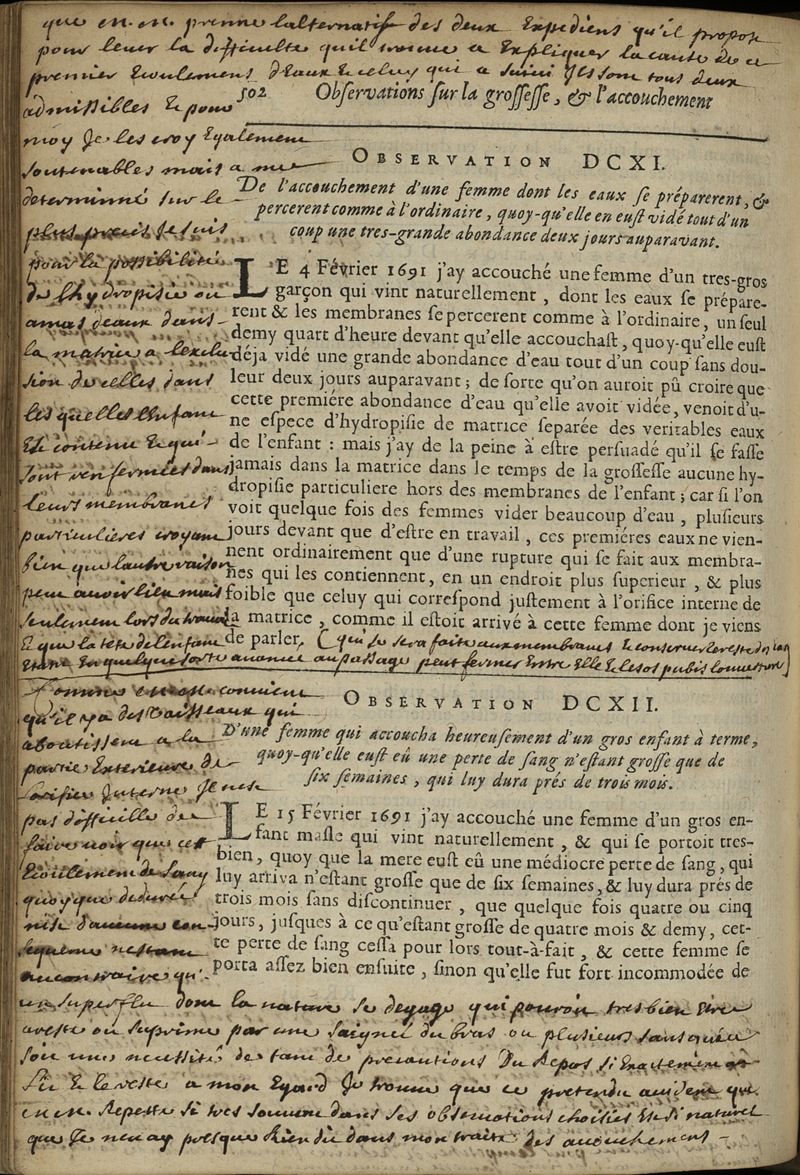 que m. m. prenne lalternatif des deux Expediens qu'il propose
pour lever la difficulté quil trouve a Expliquer la cause de ce
premier Ecoulement deaux & celuy qui a suivi Ils sont tous deux
admissibles & pour
502 Observations sur la grossesse, & l'accouchement
moy Je les croy Egalement
soutenables mais a me
determinné sur le
plus precis Je suis
pour la possibilité
de lhydropisie ou
amas deaux dans
la matrice a lexclu
sion de celles dans
lesquelles lenfant
Est contenu & qui
sont renfermées dans
leurs membranes
particulieres croyant
bien que lautre raison
peut avoir lieu mais
seulement lors du travail
& que la tête de lenfant
OBSERVATION DCXI.
De l'accouchement d'une femme dont les eaux se préparerent, &
percerent comme à l'ordinaire, quoy-qu'elle en eust vidé tout d'un
coup une tres-grande abondance deux jours auparavant.
LE 4 Février 1691 j'ay accouché une femme d'un tres-gros
garçon qui vint naturellement, dont les eaux se prépare-
rent & les membranes se percerent comme à l'ordinaire, un seul
demy quart d'heure devant qu'elle accouchast, quoy-qu'elle eust
déja vidé une grande abondance d'eau tout d'un coup sans dou-
leur deux jours auparavant; de sorte qu'on auroit pû croire que
cette premiére abondance d'eau qu'elle avoit vidée, venoit d'u-
ne espece d'hydropisie de matrice separée des veritables eaux
de l'enfant: mais j'ay de la peine à estre persuadé qu'il se fasse
jamais dans la matrice dans le temps de la grossesse aucune hy-
dropisie particuliere hors des membranes de l'enfant; car si l'on
voit quelque fois des femmes vider beaucoup d'eau, plusieurs
jours devant que d'estre en travail, ces premiéres eaux ne vien-
nent ordinairement que d'une rupture qui se fait aux membra-
nes qui les contiennent, en un endroit plus superieur, & plus
foible que celuy qui correspond justement à l'orifice interne de
la matrice, comme il estoit arrivé à cette femme dont je viens
de parler, (qui se sera faite aux membranes & conserver le reste des eaux
Entré En quelque sorte avancée au passage peut fermer Entre Elle & les os pubis louverture)
OBSERVATION DCXII.
D'une femme qui accoucha heureusement d'un gros enfant à terme,
quoy-qu'elle eust eû une perte de sang n'estant grosse que de
six semaines, qui luy dura prés de trois mois.
LE 15 Février 1691 j'ay accouché une femme d'un gros en-
fant masle qui vint naturellement, & qui se portoit tres-
bien, quoy que la mere eust eû une médiocre perte de sang, qui
luy arriva n'estant grosse que de six semaines, & luy dura prés de
trois mois sans discontinuer, que quelque fois quatre ou cinq
jours, jusques à ce qu'estant grosse de quatre mois & demy, cet-
te perte de sang cessa pour lors tout-à-fait, & cette femme se
porta assez bien ensuite, sinon qu'elle fut fort incommodée de
convient
qu'il y a des Vaisseaux qui
aboutissent a la
partie Exterieure de
lorifice Interne Je nest
pas difficille de
faire voir que cet
Ecoulement de sang
quoy que de durée
nest daucune con-
sequence nestant
au contraire qu'
un superflu dont la nature se degage qui pouroit tres bien Etre
aresté ou suprimé par une saignée du bras ou plusieurs sans quil
soit une necessité de tant de precautions Du Repos si Exactement
lit & le reste a mon Egard Je trouve que ce pretendu accident que
m. Repette si tres souvent dans ses observations choisies Est si naturel
que Je nen ay presque Rien dit dans mon traité des accouchements